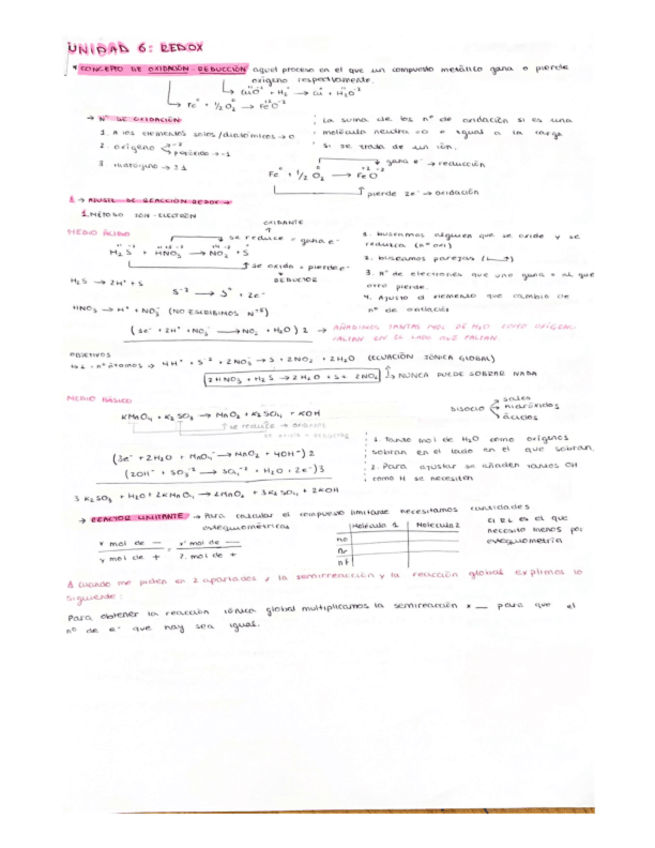 UNIDAD 6: REDOX
* CONCEPTO DE OXIDACIÓN-REDUCCIÓN aquel proceso en el que un compuesto metálico gana o pierde
oxígeno respectivamente.
↳ CuO + H₂ → Cu + H₂O
↳ Fe + 1/2 O₂ → FeO
→ Nº DE OXIDACIÓN
1. A los elementos solos/diatómicos → 0
2. oxígeno → -2
peróxido → -1
3. hidrógeno → ±1
La suma de los nº de oxidación si es una
molécula neutra = 0 o igual a la carga
si se trata de un ión.
gana e⁻ → reducción
Fe + 1/2 O₂ → FeO
pierde 2e⁻ → oxidación
→ AJUSTE DE REACCIÓN REDOX
1. MÉTODO ION-ELECTRÓN
MEDIO ÁCIDO
OXIDANTE
se reduce = gana e⁻
H₂S + HNO₃ → NO₂ + S
se oxida = pierde e⁻
REDUCTOR
1. buscamos alguien que se oxide y se
reduzca (nº oxi)
2. buscamos parejas
3. nº de electrones que uno gana = al que
otro pierde.
4. Ajusto el elemento que cambia de
nº de oxidación
H₂S → 2H⁺ + S
S⁻² → S⁰ + 2e⁻
HNO₃ → H⁺ + NO₃⁻ (NO ESCRIBIMOS N⁺⁵)
(1e⁻ + 2H⁺ + NO₃⁻ → NO₂ + H₂O) 2 → AÑADIMOS TANTAS MOL DE H₂O COMO OXÍGENO
FALTAN EN EL LADO QUE FALTAN.
OBJETIVOS
nº átomos → 4H⁺ + S⁻² + 2NO₃⁻ → S + 2NO₂ + 2H₂O (ECUACIÓN IÓNICA GLOBAL)
2HNO₃ + H₂S → 2H₂O + S + 2NO₂ → NUNCA PUEDE SOBRAR NADA
MEDIO BÁSICO
KMnO₄ + K₂SO₃ → MnO₂ + K₂SO₄ + KOH
se reduce → OXIDANTE
se oxida → REDUCTOR
DISOCIO
sales
hidróxidos
ácidos
(3e⁻ + 2H₂O + MnO₄⁻ → MnO₂ + 4OH⁻) 2
(2OH⁻ + SO₃⁻² → SO₄⁻² + H₂O + 2e⁻) 3
1. Tanto mol de H₂O como oxígenos
sobran en el lado en el que sobran.
2. Para ajustar se añaden tantos OH
como H se necesiten
3K₂SO₃ + H₂O + 2KMnO₄ → 2MnO₂ + 3K₂SO₄ + 2KOH
→ REACTOR LIMITANTE → Para calcular el compuesto limitante necesitamos cantidades
estequiométricas
x mol de — = x' mol de —
y mol de + ? mol de +
Molécula 1 Molécula 2
no
nr
nf
El RL es el que
necesito menos por
estequiometría
Cuando me piden en 2 apartados, la semirreacción y la reacción global explimos lo
siguiente:
Para obtener la reacción iónica global multiplicamos la semireacción x __ para que el
nº de e⁻ que hay sea igual.